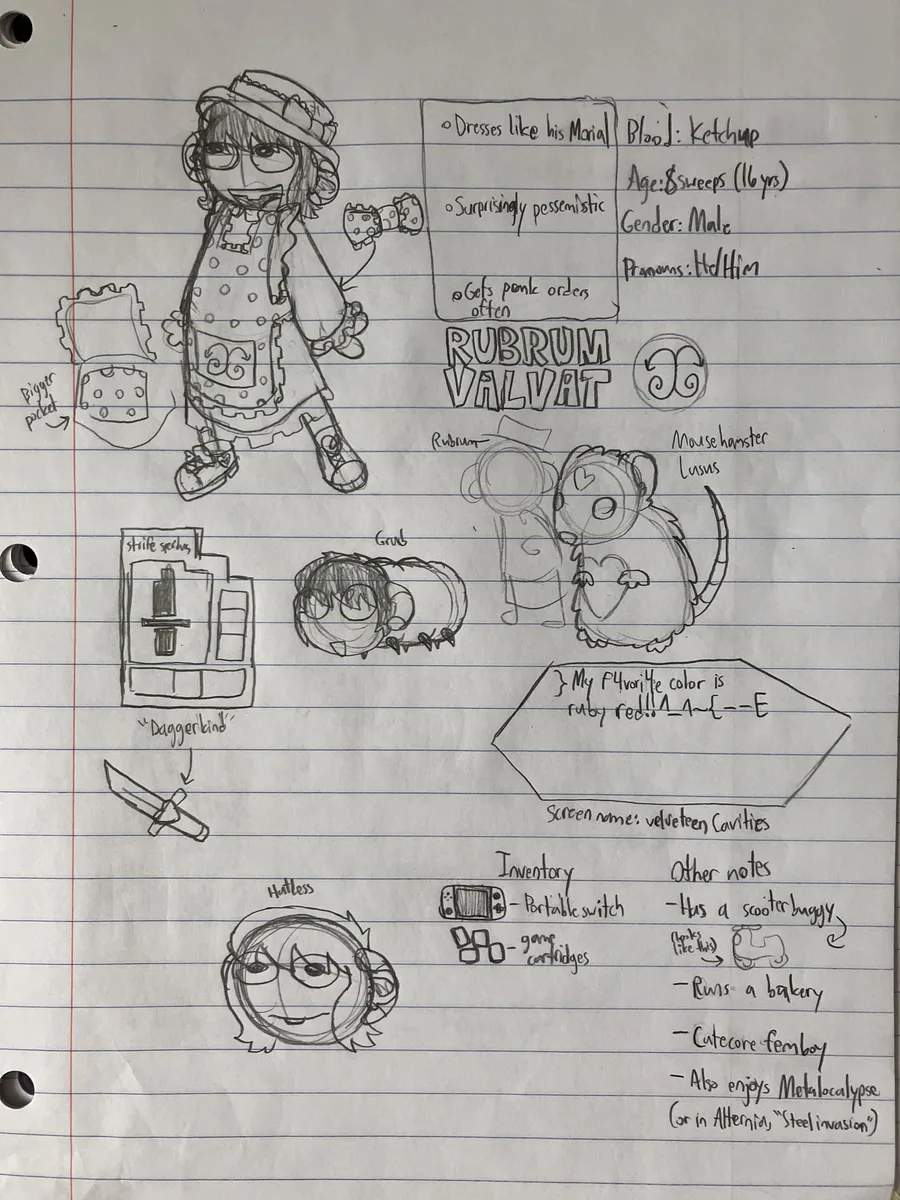 ◦ Dresses like his Morial
◦ Surprisingly pessemistic
◦ Gets panic orders
often
Blood: Ketchup
Age: 8 sweeps (16 yrs)
Gender: Male
Pronouns: He/Him
RUBRUM
VALVAT
Bigger
pocket
Rubrum
Mousehamster
Lusus
strife specibus
Grub
"Daggerkind"
} My f4vori4e color is
ruby red!!^_^~{---E
Screen name: velveteen Cavities
Hatless
Inventory
- Portable switch
- game
cartridges
Other notes
- Has a scooterbuggy
(looks
like this)
- Runs a bakery
- Cutecore femboy
- Also enjoys Metalocalypse
(or in Alternia, "Steel invasion")